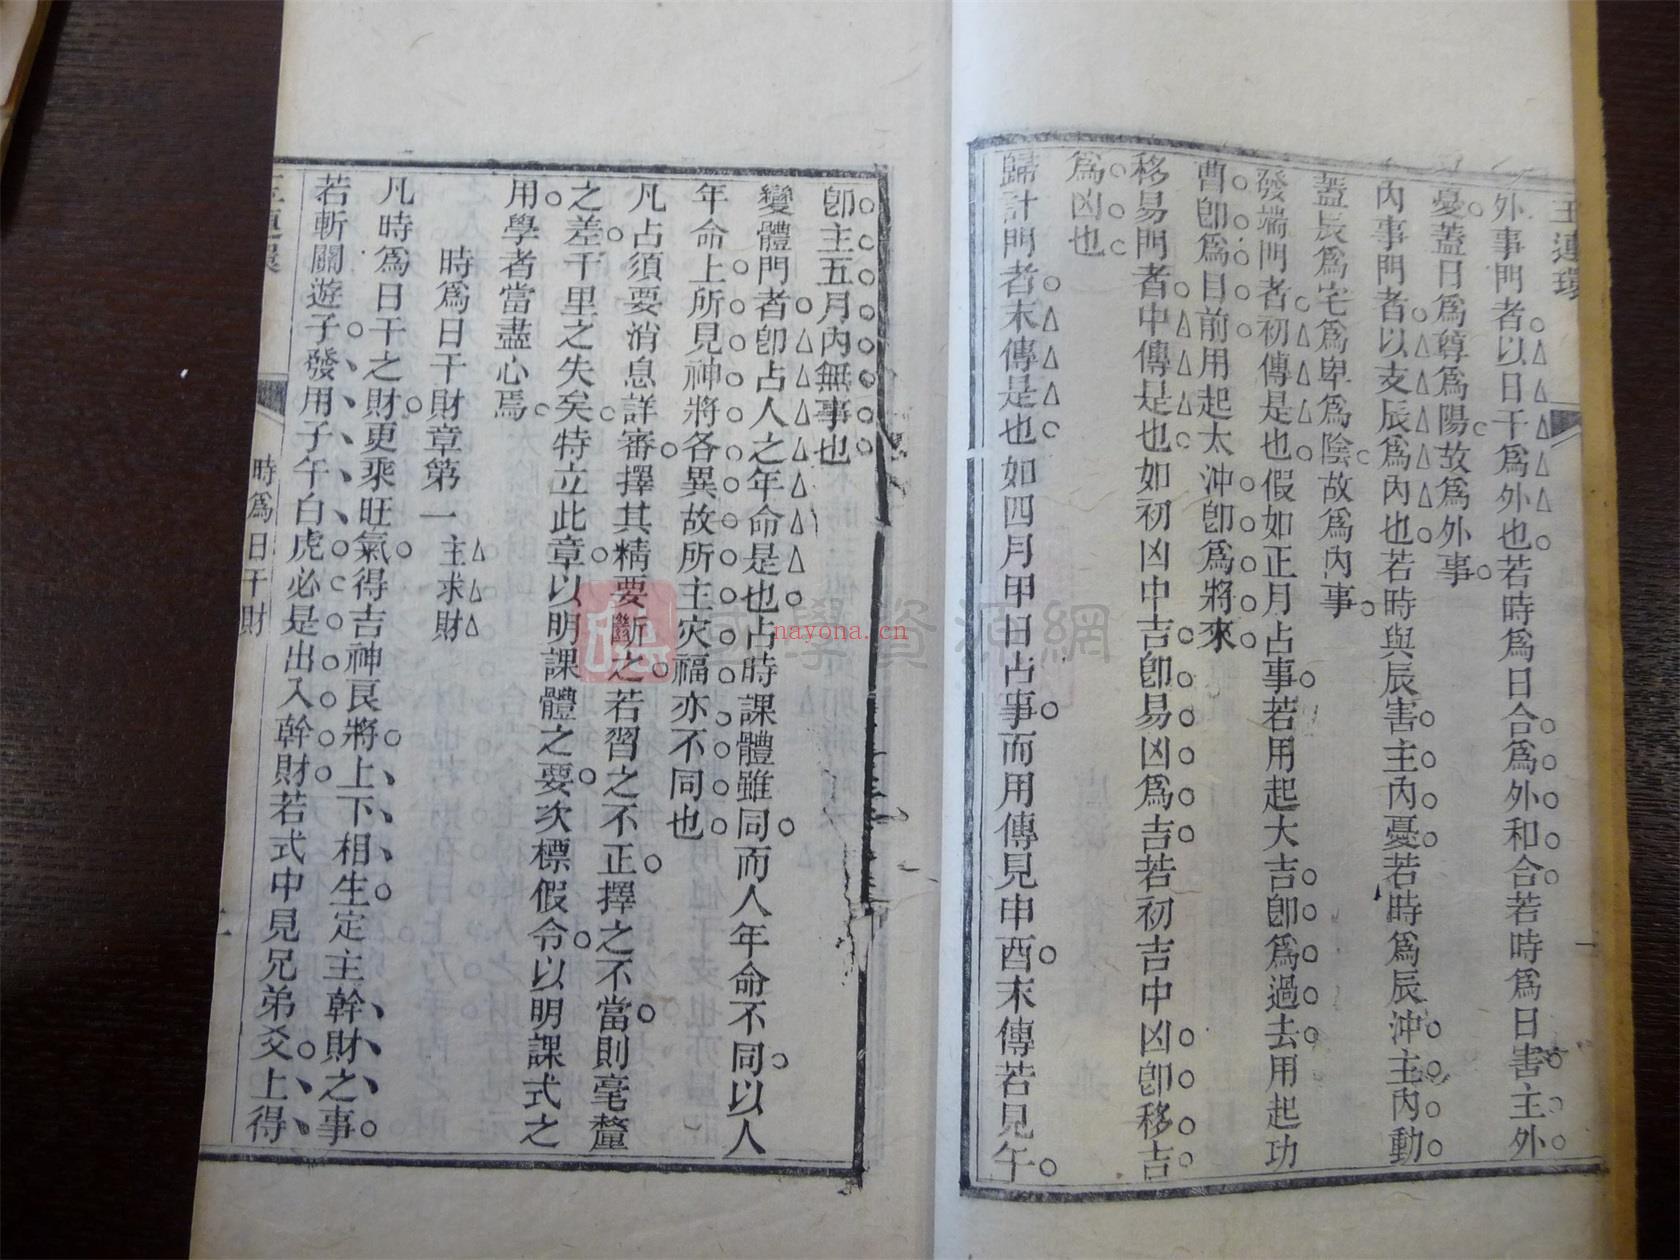 玉連環
外事門者以日干爲外也若時爲日合爲外和合若時爲日害主外
憂蓋日爲尊爲陽故爲外事
內事門者以支辰爲內也若時與辰害主內憂若時爲辰沖主內動
蓋辰爲宅爲卑爲陰故爲內事
發端門者初傳是也假如正月占事若用起大吉卽爲過去用起功
曹卽爲目前用起太沖卽爲將來
移易門者中傳是也如初凶中吉卽易凶爲吉若初吉中凶卽移吉
爲凶也
歸計門者末傳是也如四月甲日占事而用傳見申酉末傳若見午
卽主五月內無事也
變體門者卽占人之年命是也占時課體雖同而人年命不同以人
年命上所見神將各異故所主灾福亦不同也
凡占須要消息詳審擇其精要斷之若習之不正擇之不當則毫釐
之差千里之失矣特立此章以明課體之要次標假令以明課式之
用學者當盡心焉
時爲日干財章第一 主求財
凡時爲日干之財更乘旺氣得吉神良將上下相生定主幹財之事
若斬關遊子發用子午白虎必是出入幹財若式中見兄弟爻上得
時爲日干財
國學資源網
nayona.cn